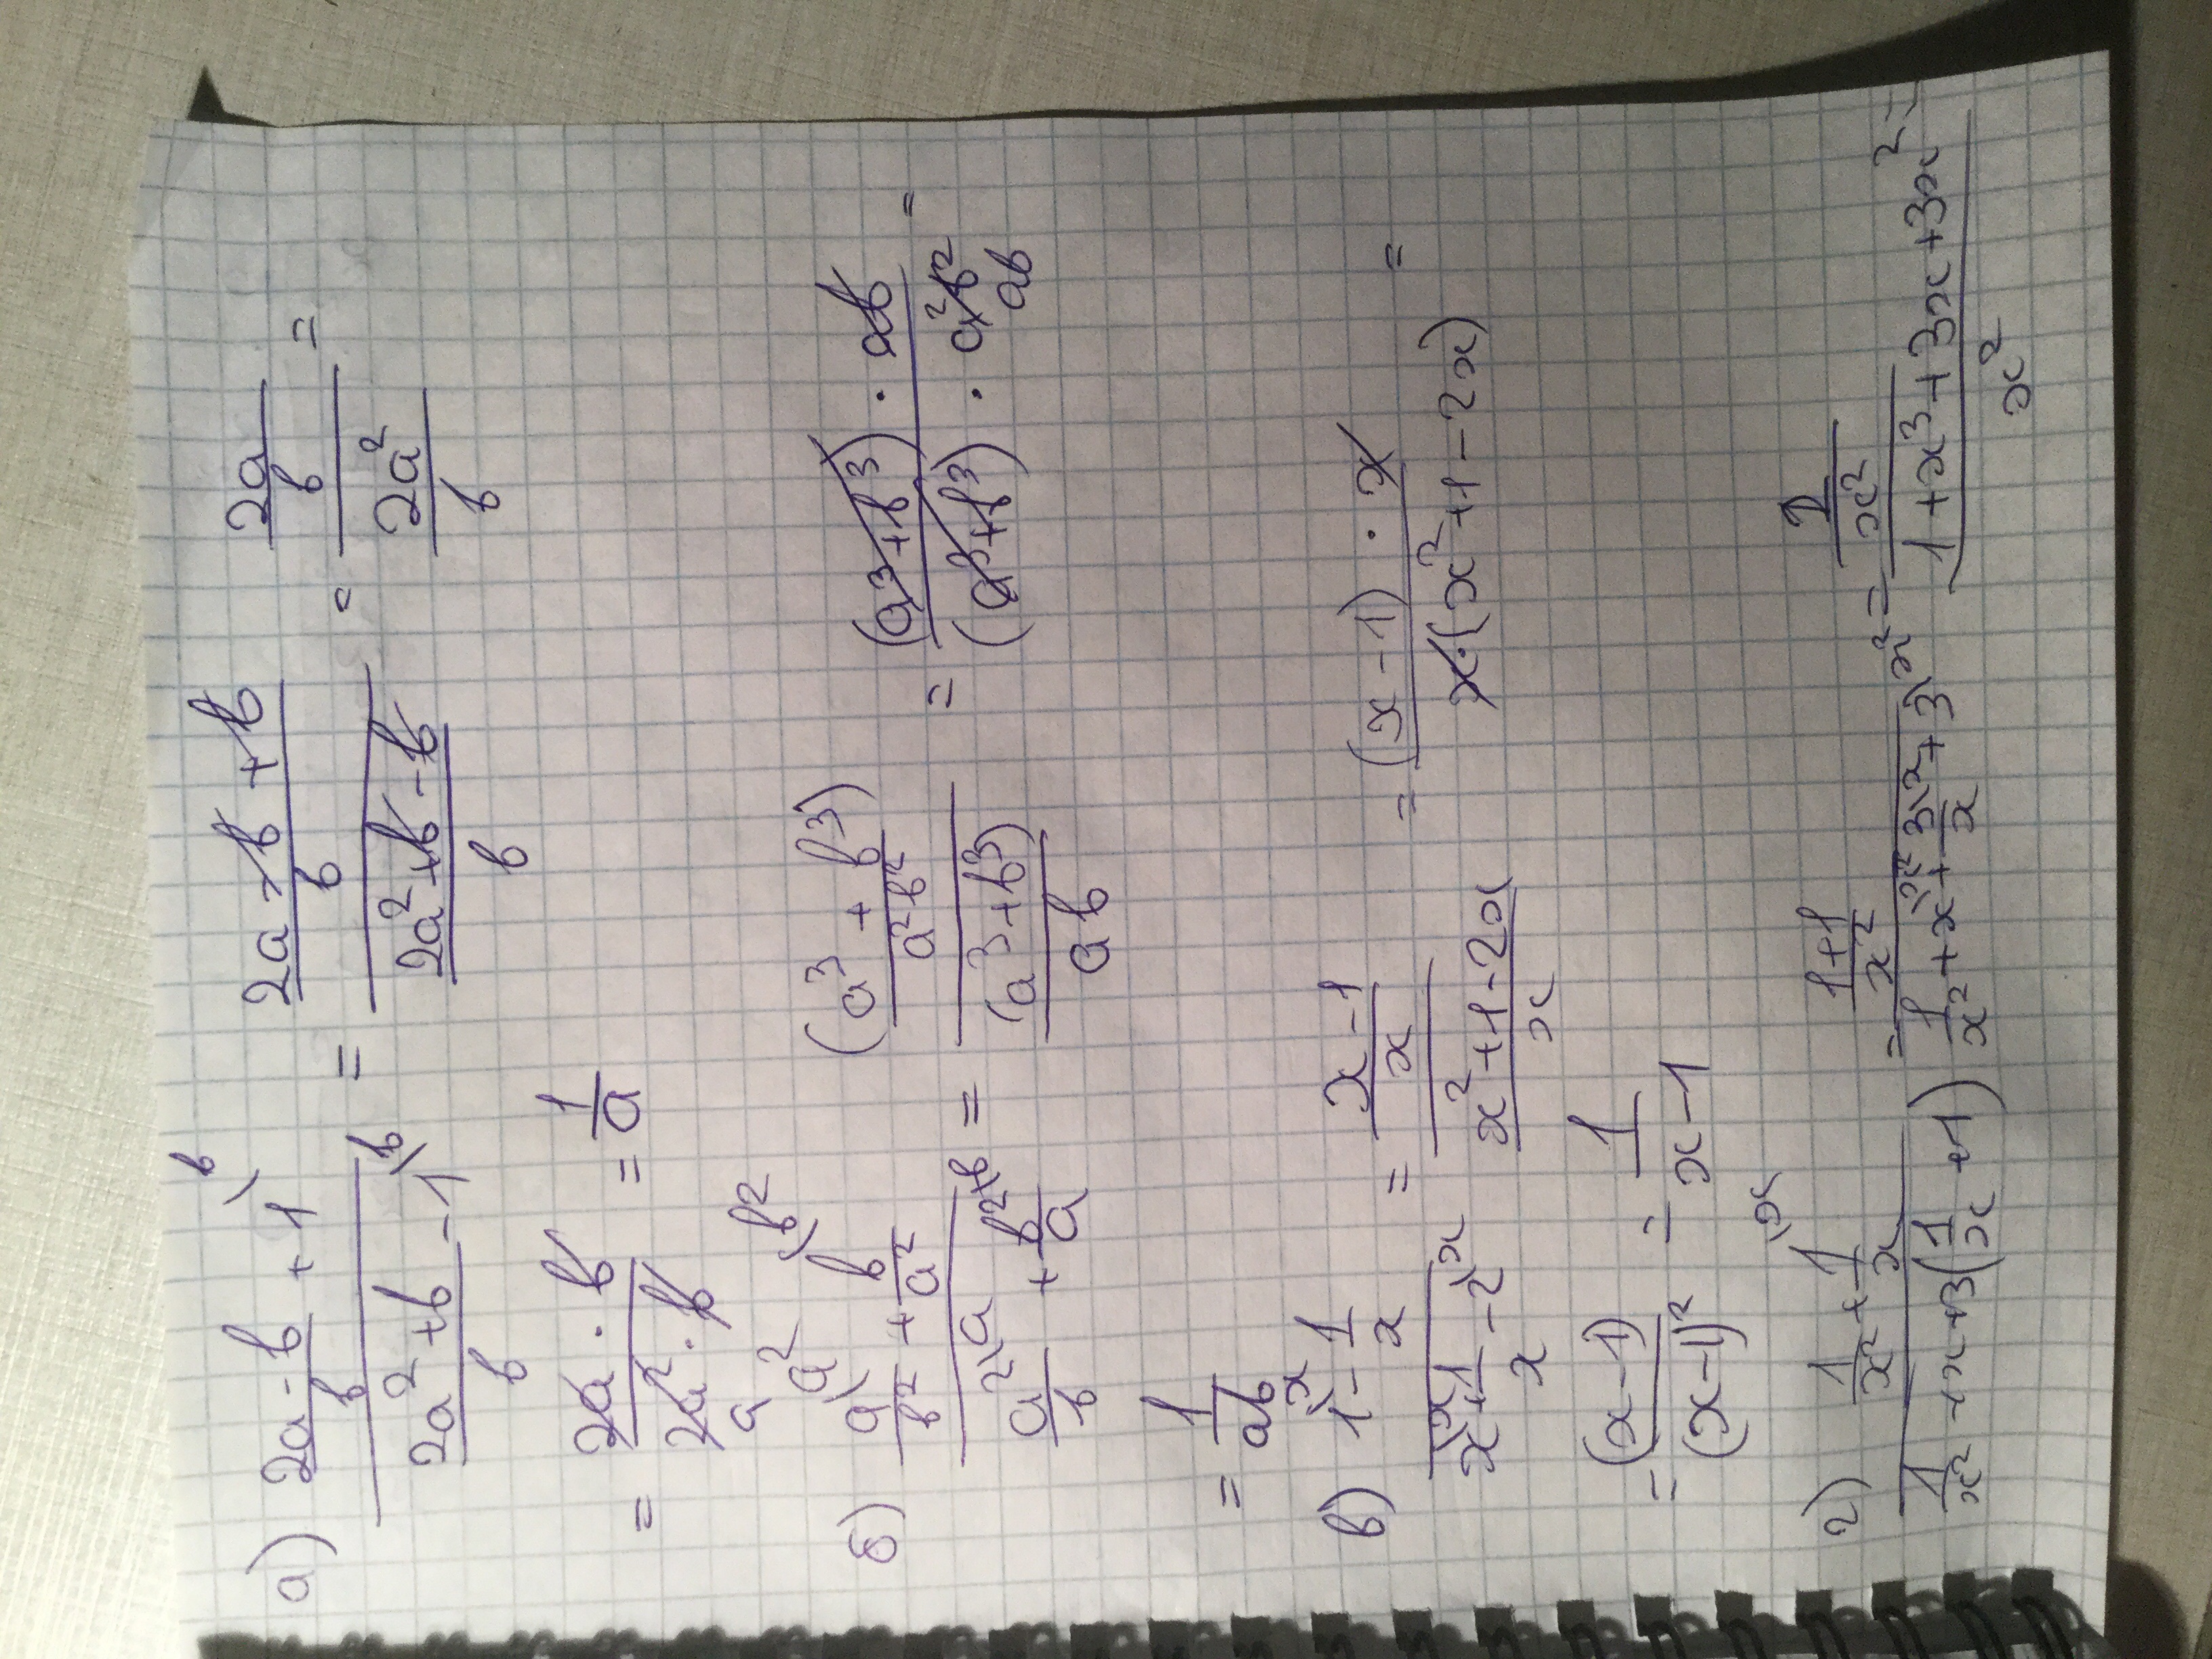 а) ((2a - b)/b + 1\b) / ((2a² + b)/b - 1\b) = ((2a - b + b)/b) / ((2a² + b - b)/b) = (2a/b) / (2a²/b) =
= (2a · b)/(2a² · b) = 1/a
a
б) (a\a²/b² + b\b²/a²) / (a²\a/b + b²\b/a) = ((a³ + b³)/a²b²) / ((a³ + b³)/ab) = ((a³ + b³) · ab)/((a³ + b³) · a²b²) =
ab
= 1/ab
в) (1\x - 1/x) / (x\x + 1/x - 2\x) = ((x - 1)/x) / ((x² + 1 - 2x)/x) = ((x - 1) · x)/(x · (x² + 1 - 2x)) =
= (x - 1)/(x - 1)² = 1/(x - 1)
г) (1/x² + 1\x/x) / (1/x² + x + 3(1/x + 1)) = ((1 + 1)/x²) / (1/x² + x\x² + 3\x/x + 3\x²) = (2/x²) / ((1 + x³ + 3x + 3x²)/x²) =